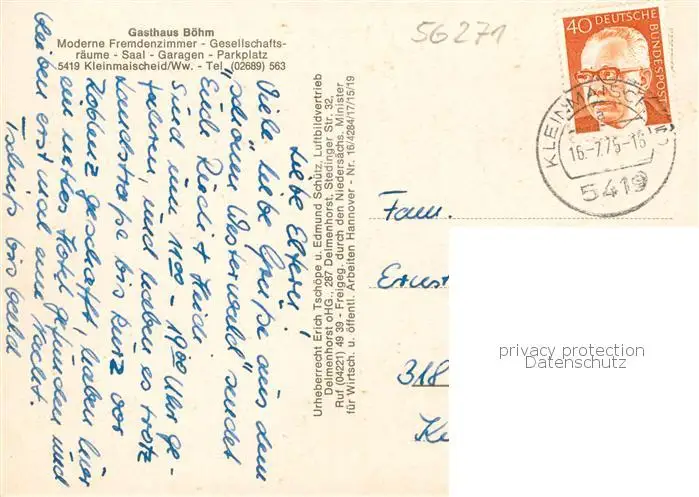 Gasthaus Böhm
Moderne Fremdenzimmer - Gesellschafts-
räume - Saal - Garagen - Parkplatz
5419 Kleinmaischeid/Ww. - Tel. (02689) 563
Liebe Eltern!
Viele liebe Grüße aus dem
"schönen Westerwald" sendet
Euch Riedi + Heidi.
Sind um 11°° - 19°° Uhr ge-
fahren, und haben es trotz
Landstraße bis kurz vor
Koblenz geschafft, haben hier
ein nettes Hotel gefunden und
bleiben erst mal eine Nacht.
Tschüß bis bald
Urheberrecht Erich Tschöpe u. Edmund Schütz, Luftbildvertrieb
Delmenhorst oHG., 287 Delmenhorst, Stedinger Str. 32,
Ruf (04221) 49 39 - Freigeg. durch den Niedersächs. Minister
für Wirtsch. u. öffentl. Arbeiten Hannover - Nr. 16/4284/17/15/19
56271
40 DEUTSCHE
BUNDESPOST
KLEINMAISCHEID
5419
Fam.
Ernst
318
privacy protection
Datenschutz